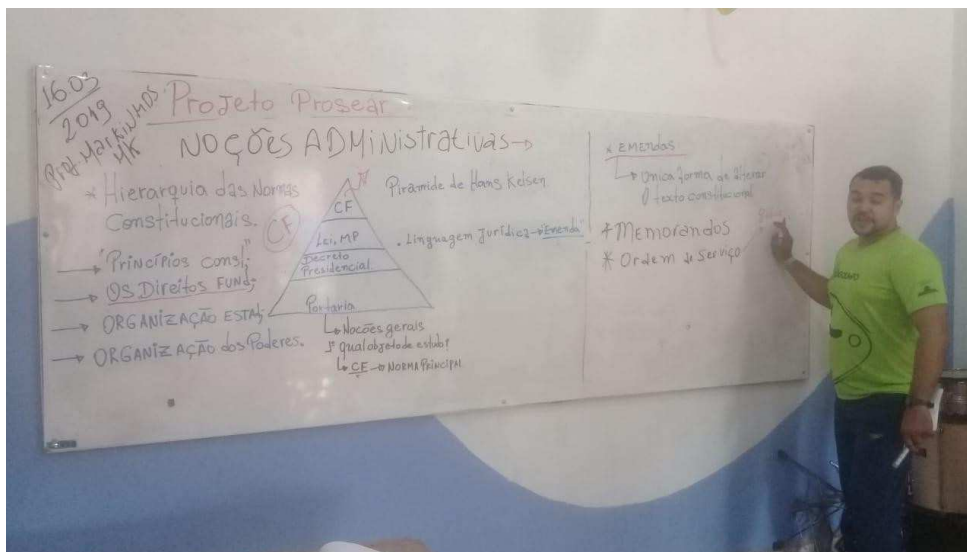 16.03
2019
Prof. MARKINHOS
MK
Projeto Prosear
NOÇÕES ADMINISTRATIVAS
* Hierarquia das Normas
Constitucionais.
CF
"Princípios const;
OS Direitos FUND;
ORGANIZAÇÃO ESTAT;
ORGANIZAÇÃO dos Poderes.
CF
Lei, MP
Decreto
Presidencial
Portaria
Pirâmide de Hans Kelsen
. Linguagem Jurídica → "Emenda"
Nocões gerais
qual objeto de estudo?
CF → NORMA PRINCIPAL
* EMENdas
Única forma de alterar
o texto constitucional
* MEMorandos
* Ordem de Serviço